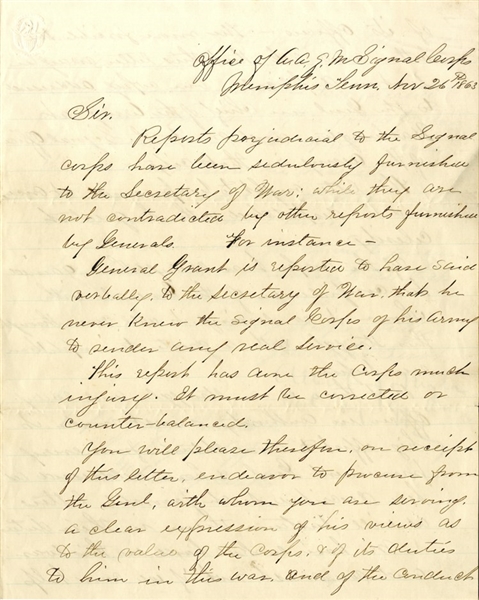 Office of A.A.Q.M Signal Corps
Memphis Tenn, Nov 26th 1863
Sir.
Reports prejudicial to the Signal
corps have been sedulously furnished
to the Secretary of War; while they are
not contradicted by other reports furnished
by Generals. For instance -
General Grant is reported to have said
verbally, to the Secretary of War, that he
never knew the Signal Corps of his Army
to render any real service.
This report has done the Corps much
injury. It must be corrected or
counter-balanced.
You will please therefore, on receipt
of this letter, endeavor to procure from
the Genl, with whom you are serving,
a clear expression of his views as
to the value of the Corps, & of its duties
to him in this war, and of the conduct